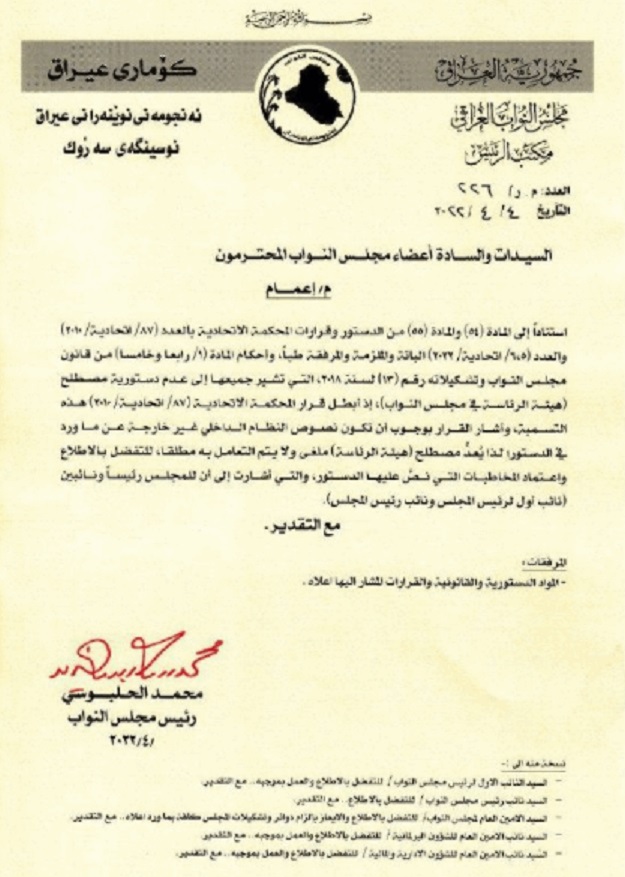 بسم الله الرحمن الرحيم
جمهورية العراق
مجلس النواب العراقي
مكتب الرئيس
كۆماری عیراق
ئه نجومه نی نوێنه رانی عیراق
نوسینگه ی سه رۆك
العدد: م.ر/ ٢٢٦
التاريخ ٤/ ٤ /٢٠٢٢
السيدات والسادة أعضاء مجلس النواب المحترمون
م/ إعمام
استناداً إلى المادة (٥٤) والمادة (٥٥) من الدستور وقرارات المحكمة الاتحادية بالعدد (٨٧/ اتحادية/ ٢٠١٠)
والعدد اتحادية/ ٢٠٢٢) الباتة والملزمة والمرفقة طياً، وأحكام المادة (١/ رابعا وخامسا) من قانون
مجلس النواب وتشكيلاته رقم (١٣) لسنة ٢٠١٨، التي تشير جميعها إلى عدم دستورية مصطلح
(هيئة الرئاسة في مجلس النواب)، إذ أبطل قرار المحكمة الاتحادية (٨٧/ اتحادية/ ٢٠١٠) هذه
التسمية، وأشار القرار بوجوب أن تكون نصوص النظام الداخلي غير خارجة عن ما ورد
في الدستور؛ لذا يُعدُّ مصطلح (هيئة الرئاسة) ملغى ولا يتم التعامل به مطلقا، للتفضل بالاطلاع
واعتماد المخاطبات التي نصَّ عليها الدستور، والتي أشارت إلى أن للمجلس رئيساً ونائبين
(نائب أول لرئيس المجلس ونائب رئيس المجلس).
مع التقدير.
المرفقات:
- المواد الدستورية والقانونية والقرارات المشار اليها اعلاه .
محمد الحلبوسي
رئيس مجلس النواب
/٢٠٢٢/٤
نسخة منه الى :-
– السيد النائب الاول لرئيس مجلس النواب/ للتفضل بالاطلاع والعمل بموجبه.. مع التقدير.
– السيد نائب رئيس مجلس النواب / للتفضل بالاطلاع.. مع التقدير.
– السيد الامين العام لمجلس النواب/ للتفضل بالاطلاع والايعاز بالزام دوائر وتشكيلات المجلس كافة بما ورد اعلاه.. مع التقدير.
– السيد نائب الامين العام للشؤون البرلمانية / للتفضل بالاطلاع والعمل بموجبه.. مع التقدير.
– السيد نائب الامين العام للشؤون الادارية والمالية / للتفضل بالاطلاع والعمل بموجبه.. مع التقدير.